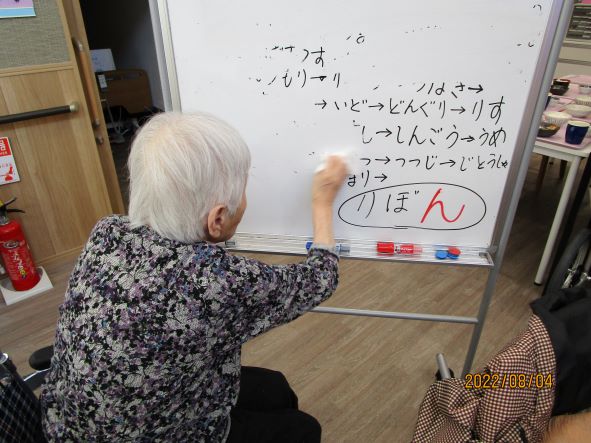 もり→り
→いど→どんぐり→りす
し→しんごう→うめ
つ→つつじ→じどうしゃ
まり→
りぼん
2022/08/04